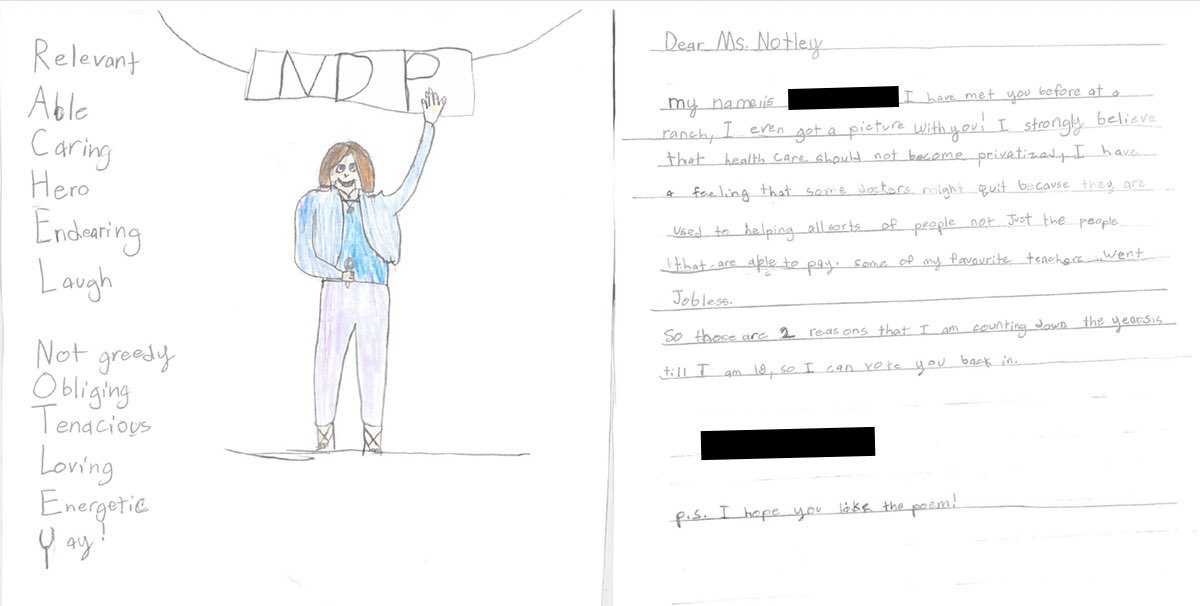 Relevant
Able
Caring
Hero
Endearing
Laugh
Not greedy
Obliging
Tenacious
Loving
Energetic
Yay!
NDP
Dear Ms. Notley
my name is I have met you before at a
ranch, I even got a picture with you! I strongly believe
that health care should not become privatized, I have
a feeling that some doctors might quit because they are
used to helping all sorts of people not Just the people
that are able to pay. some of my favourite teachers went
Jobless.
So those are 2 reasons that I am counting down the years
till I am 18, so I can vote you back in.
p.s. I hope you like the poem!